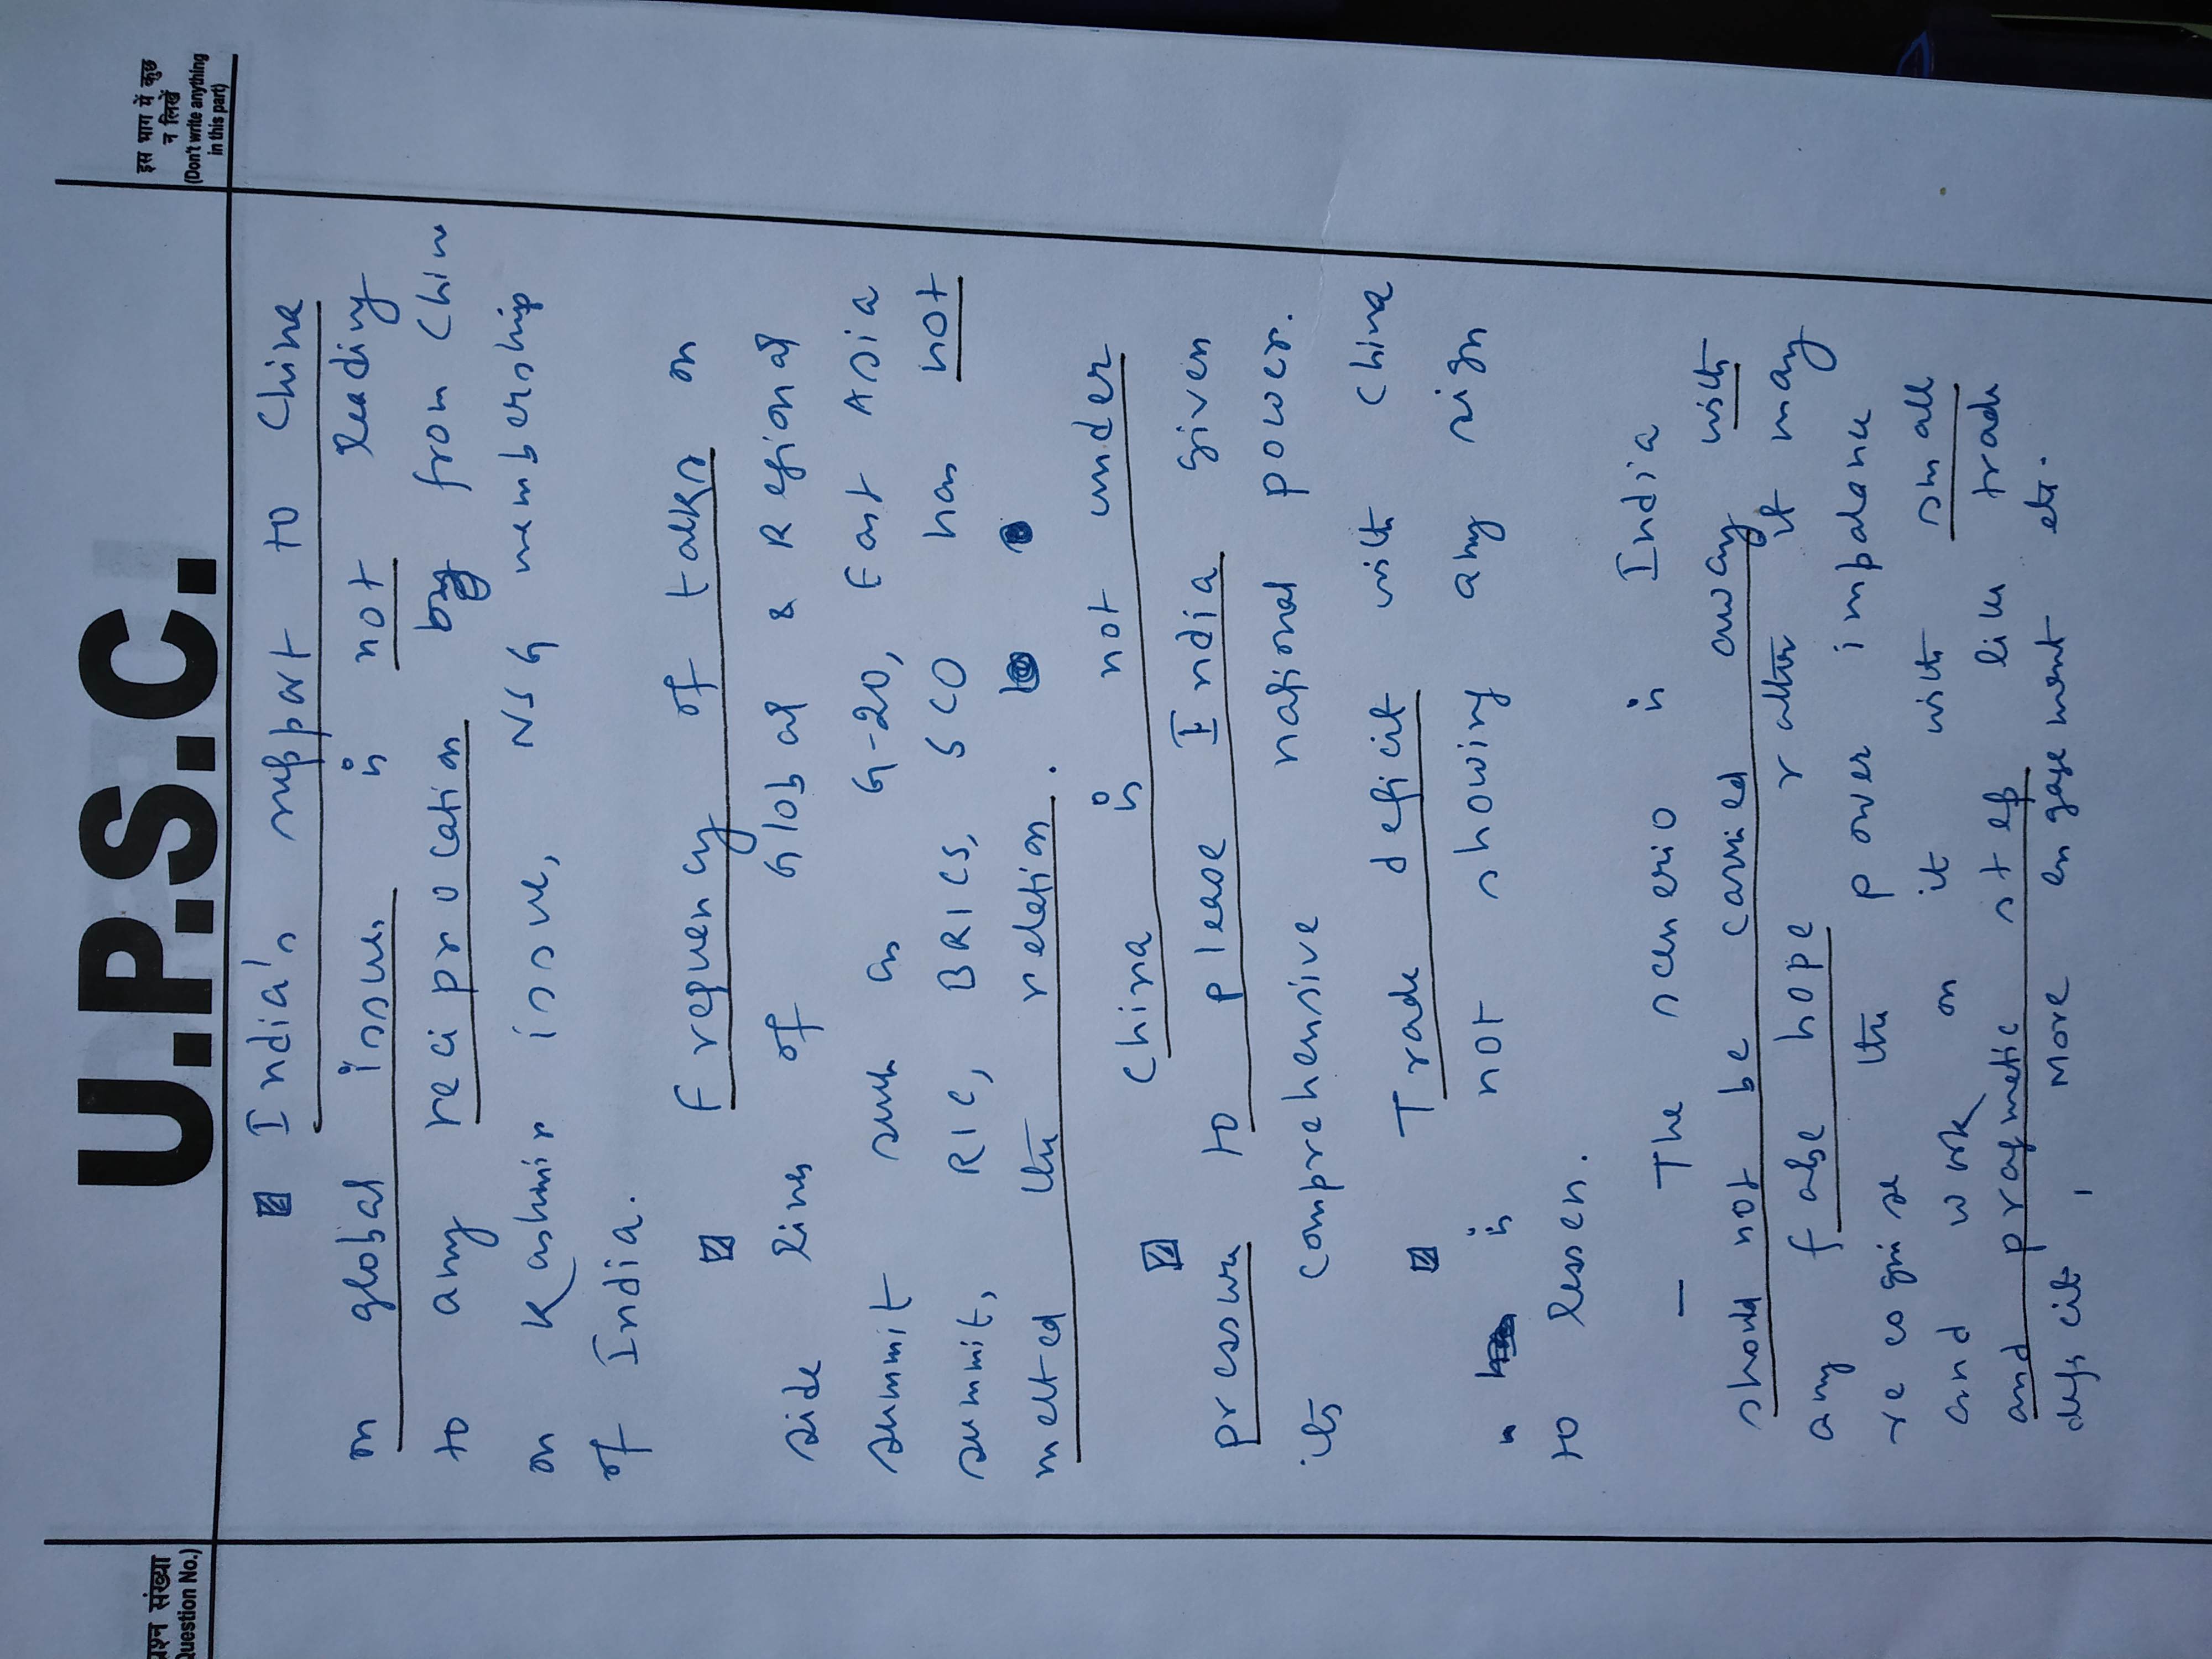 U.P.S.C.
प्रश्न संख्या
(Question No.)
इस भाग में कुछ
न लिखें
(Don't write anything
in this part)
India's support to China
on global issues is not leading
to any reciprocation from China
on Kashmir issue, NSG membership
of India.
Frequency of talks on
side lines of Global & Regional
summit such as G-20, East Asia
summit, RIC, BRICS, SCO has not
melted the relation.
China is not under
pressure to please India given
its comprehensive national power.
Trade deficit with China
is not showing any sign
to lessen.
- The scenerio is India
should not be carried away with
any false hope rather it may
recognise the power impalance
and work on it with small
and pragmatic step like trade
deficit, More engagement etc.